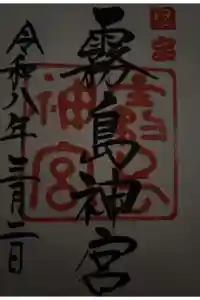 国宝
霧島神宮
令和八年三月二日
霧島
神宮